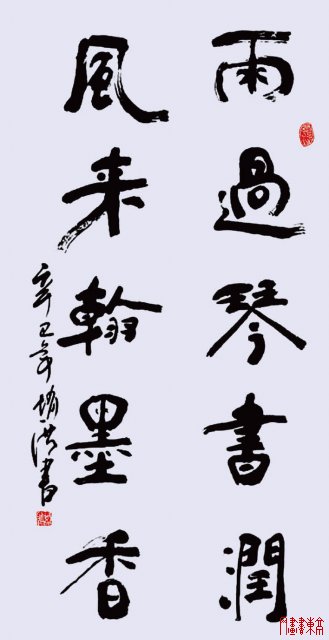 雨過琴書潤
風来翰墨香
辛丑年
洪書